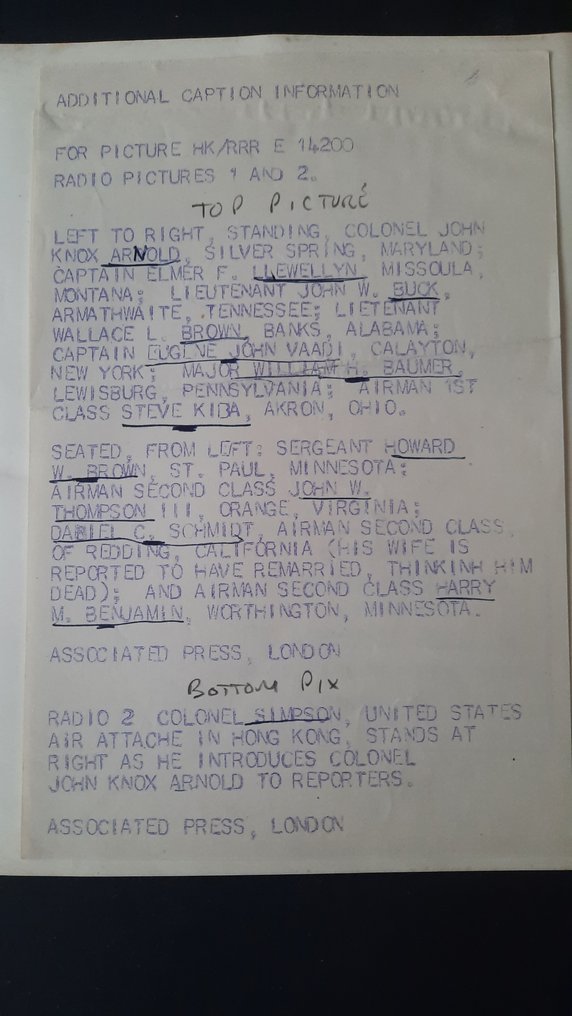 ADDITIONAL CAPTION INFORMATION
FOR PICTURE HK/RRR E 14200
RADIO PICTURES 1 AND 2.
TOP PICTURE
LEFT TO RIGHT, STANDING, COLONEL JOHN
KNOX ARNOLD, SILVER SPRING, MARYLAND;
CAPTAIN ELMER F. LLEWELLYN, MISSOULA,
MONTANA; LIEUTENANT JOHN W. BUCK,
ARMATHWAITE, TENNESSEE; LIETENANT
WALLACE L. BROWN, BANKS, ALABAMA;
CAPTAIN EUGENE JOHN VAADI, CALAYTON,
NEW YORK; MAJOR WILLIAM H. BAUMER,
LEWISBURG, PENNSYLVANIA; AIRMAN 1ST
CLASS STEVE KIBA, AKRON, OHIO.
SEATED, FROM LEFT: SERGEANT HOWARD
W. BROWN, ST. PAUL, MINNESOTA;
AIRMAN SECOND CLASS JOHN W.
THOMPSON III, ORANGE, VIRGINIA;
DANIEL C. SCHMIDT, AIRMAN SECOND CLASS,
OF REDDING, CALIFORNIA (HIS WIFE IS
REPORTED TO HAVE REMARRIED, THINKINH HIM
DEAD); AND AIRMAN SECOND CLASS HARRY
M. BENJAMIN, WORTHINGTON, MINNESOTA.
ASSOCIATED PRESS, LONDON
BOTTOM PIX
RADIO 2 COLONEL SIMPSON, UNITED STATES
AIR ATTACHE IN HONG KONG, STANDS AT
RIGHT AS HE INTRODUCES COLONEL
JOHN KNOX ARNOLD TO REPORTERS.
ASSOCIATED PRESS, LONDON